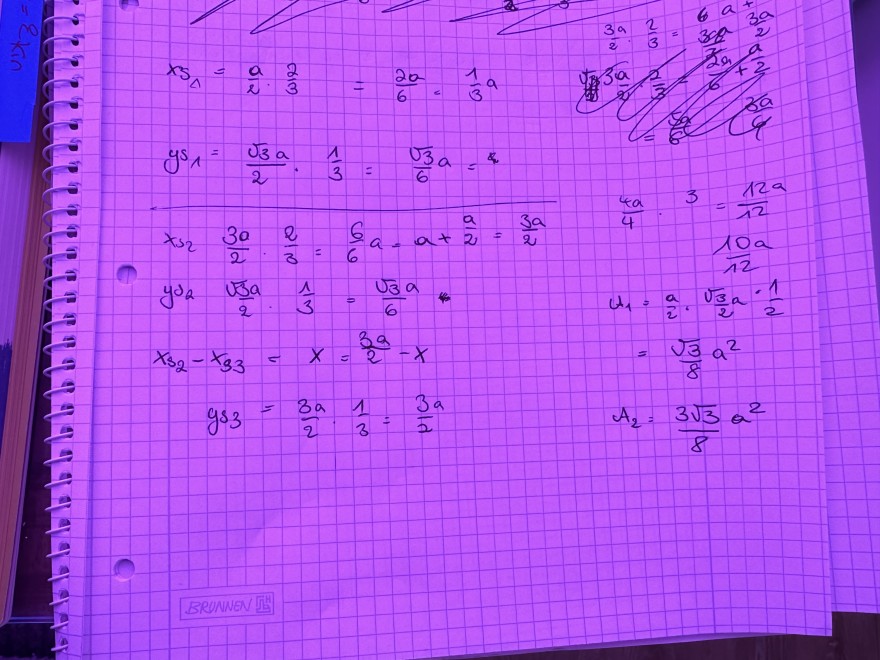 3a/2 · 2/3 = 6
xs₁ = a/2 · 2/3 = 2a/6 = 1/3 a
ys₁ = √3a/2 · 1/3 = √3/6 a =
xs₂ 3a/2 · 2/3 = 6/6 a = a + a/2 = 3a/2
ys₂ √3a/2 · 1/3 = √3a/6
xs₂ - xs3 = x = 3a/2 - x
ys3 = 3a/2 · 1/3 = 3a/2
4a/4 · 3 = 12a/12
10a/12
A₁ = a/2 · √3/2 a · 1/2
= √3/8 a²
A₂ = 3√3/8 a²
BRUNNEN